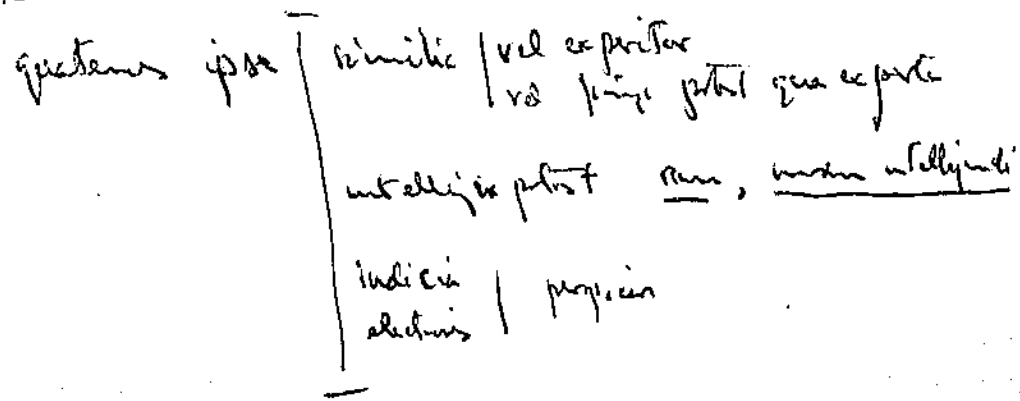 quatenus ipse similia vel experitur
vel fingi potest qua experta
intelligere potest rem, modum intelligendi
indicia
electionis